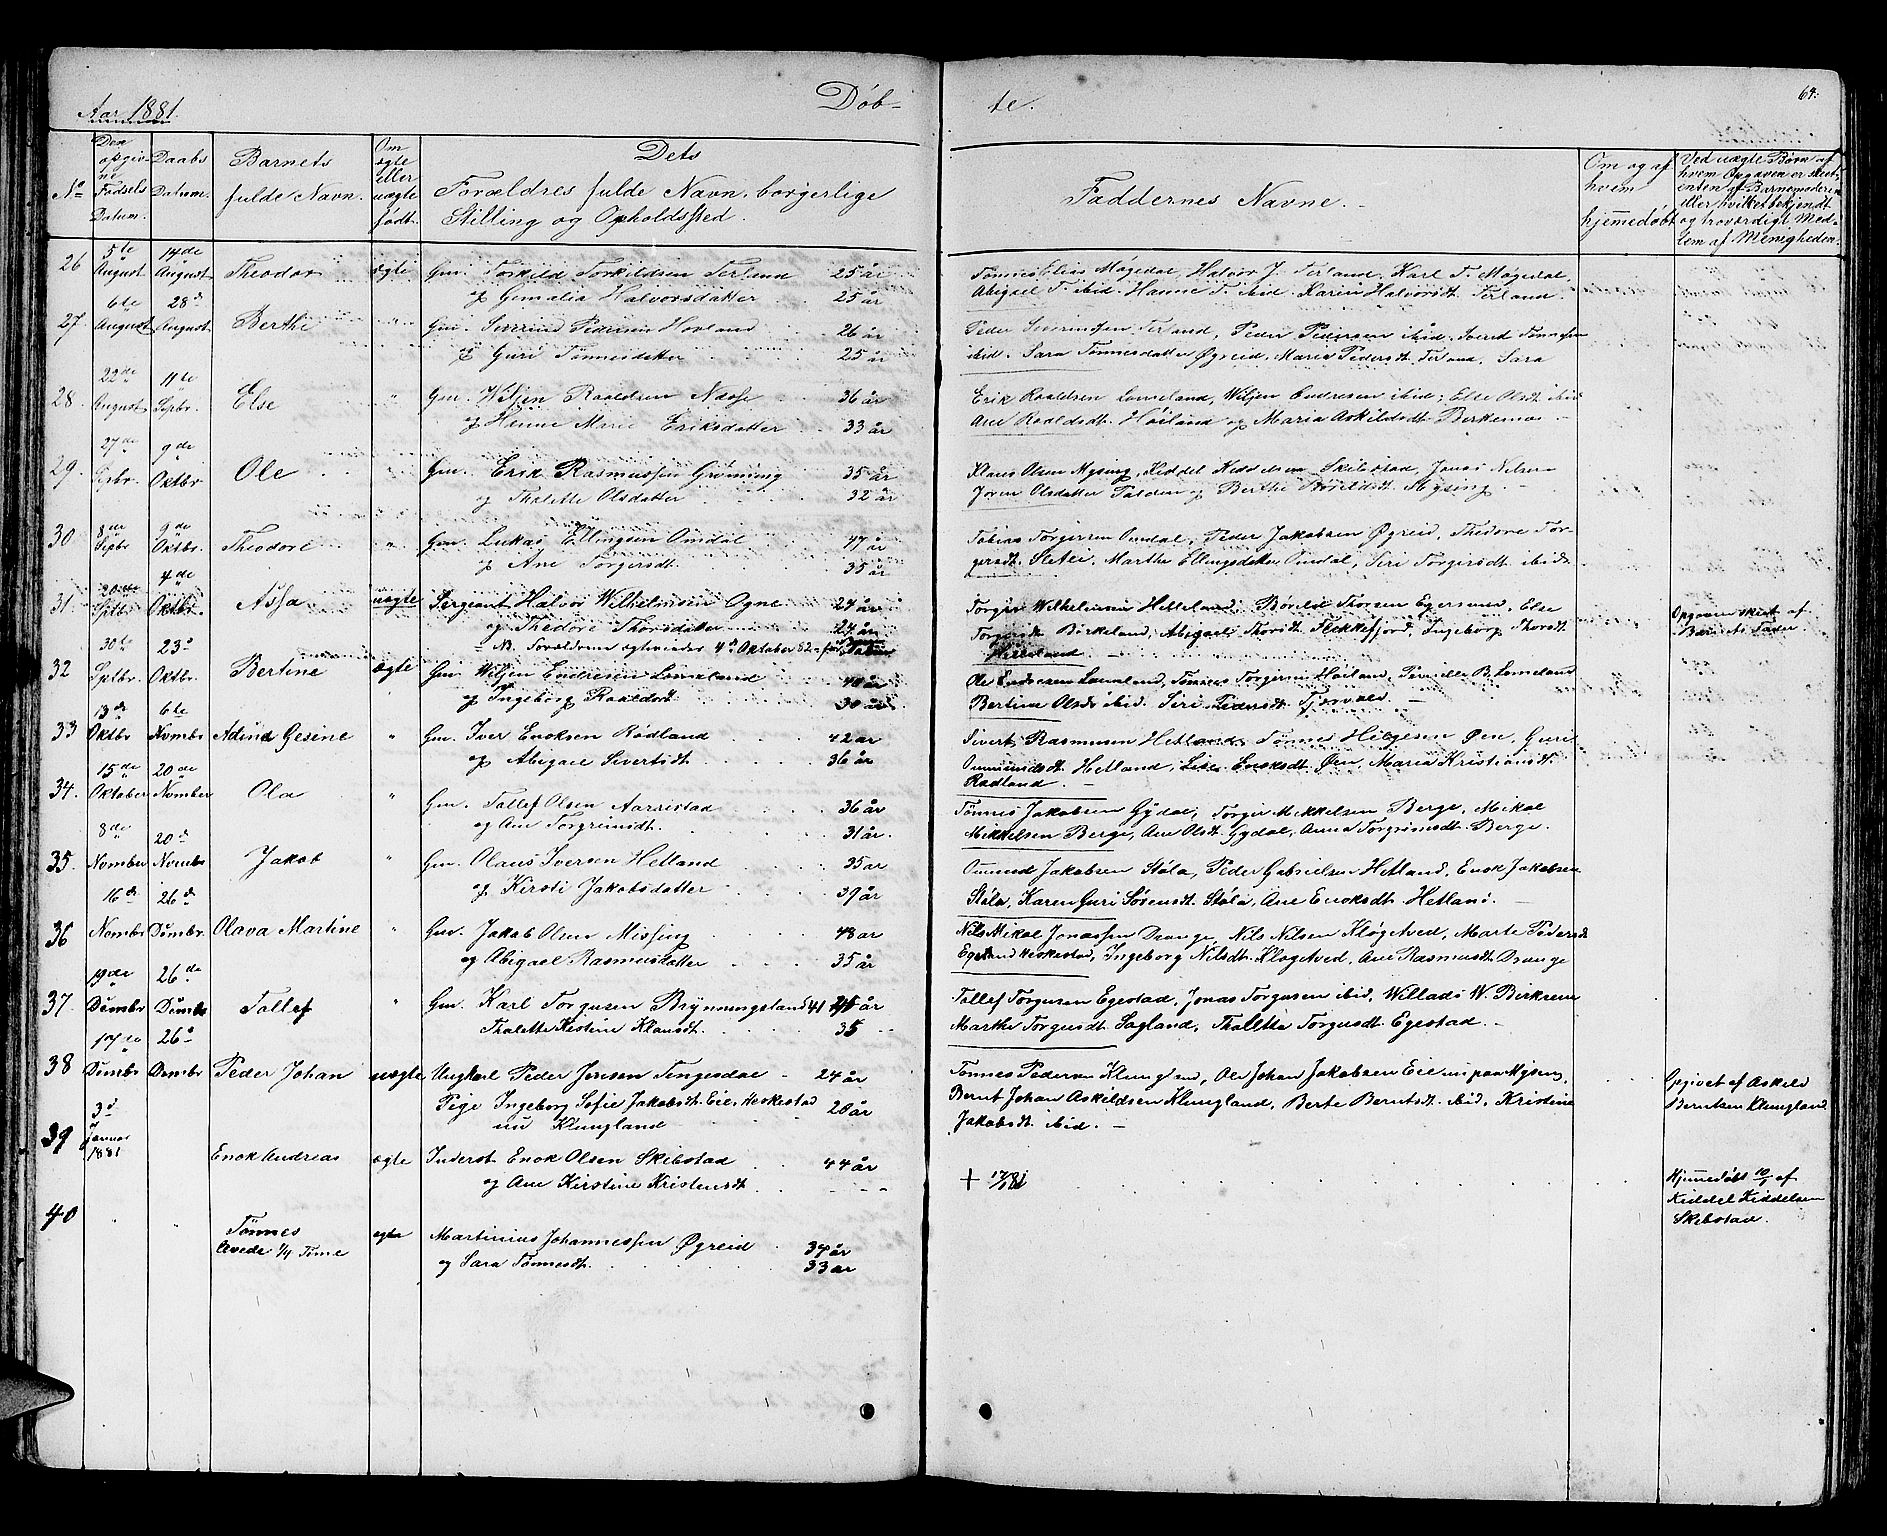 Aar 1881.
Døb-
te.
64.
No
Den opgivne Fødsels Datum.
Daabs Datum.
Barnets fulde Navn.
Om ægte eller uægte født.
Dets Forældres fulde Navn, borgerlige Stilling og Opholdssted.
Faddernes Navne.
Om og af hvem hjemmedøbt
Ved uægte Børn af hvem Opgaven er skeet, enten af Barnemoderen eller hvilket bekjendt og troværdigt Medlem af Menigheden.
26 5te August 14de August Theodor ægte Gm. Torkild Torkildsen Terland 25 år
og Gemalia Halvorsdatter 25 år
Tønnes Elias Møgedal, Halvor J. Terland, Karl T. Møgedal,
Abigael T. ibid. Hanne T. ibid. Karen Halvorsdt. Terland.
27. 6te August 28d August Berthe " Gm. Severind Pedersen Hovland 26 år
og Guri Tønnesdatter 25 år
Peder Severindsen Terland, Peder Pedersen ibid. Sverid Tønnesen
ibid. Sara Tønnesdatter Øgreid, Maria Pedersdt. Terland, Sara
28. 22de August 11te Sepbr. Else " Gm. Wiljen Roaldsen Nodse 36 år
og Hanne Marie Eriksdatter 33 år
Erik Roaldsen Lomeland, Wiljen Endresen ibid; Else Olsdt. ibid
Ane Roaldsdt. Høiland og Maria Askildsdt. Birkemo
29. 27de Sepbr. 9de Oktbr Ole " Gm. Erik Rasmussen Grøning 35 år
og Thalette Olsdatter 32 år
Klaus Olsen Mysing, Kiddel Kiddelsen Skibstad, Jonas Nilsen
Joren Olsdatter Tolden og Berthe Bøvildsdt. Mysing.
30. 8de Sepbr 9de Oktbr. Theodore " Gm. Lukas Ellingsen Omdal 47 år
og Ane Torgersdt. 35 år
Tobias Torgersen Omdal, Peder Jakobsen Øgreid, Thedore Tor-
gersdt. Sletei, Marthe Ellingsdatter Omdal, Siri Torgersdt. ibid.
31. 20de Sptbr. 4de Oktbr. Assa uægte Sergeant Halvor Wilhelmsen Ogne 24 år
og Thedore Thorsdatter 24 år
NB. Forældrene egteviedes 4d Oktober 82
Torger Wilhelmsen Helleland, Børild Thorsen Egersund, Else
Torgersdt Birkeland, Abigael Thorsdt. Flekkefjord, Ingeborg Thorsdt.
Helleland
Opgaven skeet af Barnets Fader
32 30te Sptbr. 23d Oktbr. Bertine ægte Gm. Wiljen Endresen Lomeland 40 år
og Ingeborg Roaldsdt. 30 år
Ole Endresen Lomeland, Tønnes Torgersen Høiland, Pernille B. Lomeland
Bertine Olsdt ibid. Siri Pedersdt. Tjørvold.
33 13de Oktbr 6te Nombr Adine Gesine " Gm. Iver Enoksen Rødland 42 år
og Abigael Sivertsdt. 36 år
Sivert Rasmusen Hetland, Tønnes Helgesen Øen, Guri
Ommundsdt Hetland, Lise Enoksdt. Øen, Maria Kristiansdt.
Rødland.
34. 15de Oktober 20de Nomber Ola " Gm. Tollef Olsen Aarrestad 36 år
og Ane Torgrimsdt. 31 år.
Tønnes Jakobsen Gydal, Torger Mikkelsen Berge, Mikal
Mikkelsen Berge, Ane Olsdt. Gydal, Anna Torgrimsdt. Berge.
35 8de Nomber 20d Nombr Jakob " Gm. Olaus Iversen Hetland 35 ar
og Kirsti Jakobsdatter 39 år
Ommund Jakobsen Støla, Peder Gabrielsen Hetland, Enok Jakobsen
Støla, Karen Guri Sørensdt. Støla, Ane Enoksdt. Hetland.
36 16d Nombr 26d Dcmbr. Olava Martine " Gm. Jakob Olsen Missing 48 ar
og Abigael Rasmusdatter 35 år
Nils Mikal Jonassen Drange, Nils Nilsen Kløgetved, Marte Pedersdt
Egeland Heskestad, Ingeborg Nilsdt. Kløgetved, Ane Rasmusdt. Drange
37. 19de Dcmbr 26de Dcmbr Tollef " Gm. Karl Torgusen Brynningsland 41 år
Thalette Kistine Klausdt. 35
Tollef Torgusen Egestad, Jonas Torgusen ibid, Willads W. Birkrem
Marthe Torgusdt. Sagland, Thaletta Torgusdt. Egestad.
38 17de Dcmbr 26d Dcmbr Peder Johan uægte Ungkarl Peder Jensen Tengesdal 24 år
Pige Ingeborg Sofie Jakobsdt. Eie, Heskestad 20 år
nu Klungland
Tønnes Pedersen Klungland, Ole Johan Jakobsen Eie nu paa Mysing,
Bernt Johan Askildsen Klungland, Berte Berntsdt. ibid, Kristine
Jakobsdt. ibid.
Opgivet af Askild Berntsen Klungland
39 3d Januar 1881 Enok Andreas ægte Inderst Enok Olsen Skibstad 44 år
og Ane Kirstine Kristensdt.
+ 17/1 81
Hjemmedøbt 10/1 af Kiddel Kiddelsen Skibstad.
40 " " Tønnes ægte Martinius Johannessen Øgreid 34 år
og Sara Tønnesdt. 33 ar